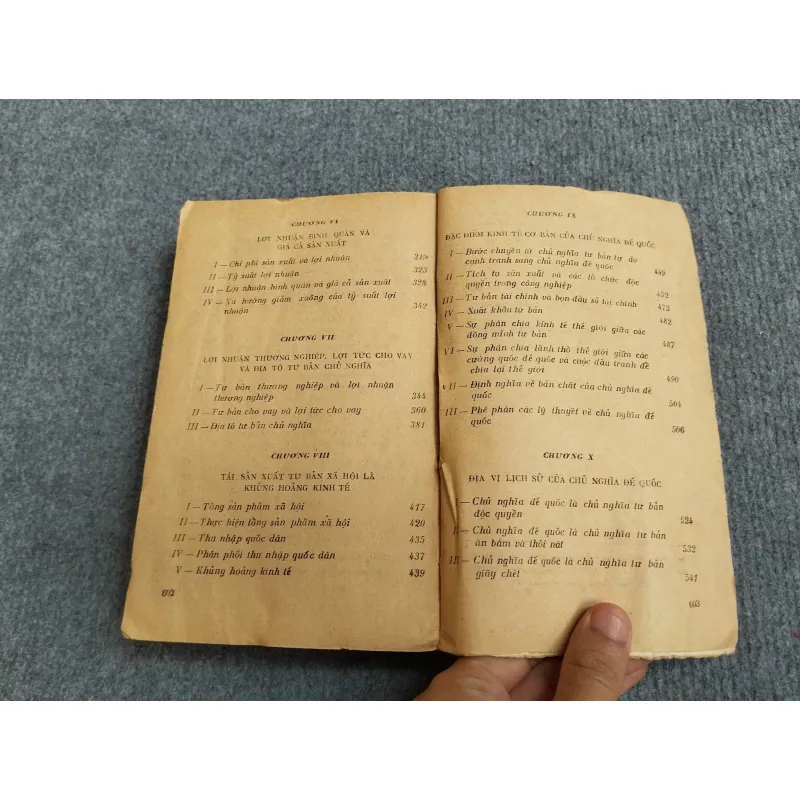 CHƯƠNG VI
LỢI NHUẬN BÌNH QUÂN VÀ
GIÁ CẢ SẢN XUẤT
I — Chi phí sản xuất và lợi nhuận 319
II — Tỷ suất lợi nhuận 323
III — Lợi nhuận bình quân và giá cả sản xuất 328
IV — Xu hướng giảm xuống của tỷ suất lợi
nhuận 342
CHƯƠNG VII
LỢI NHUẬN THƯƠNG NGHIỆP, LỢI TỨC CHO VAY
VÀ ĐỊA TÔ TƯ BẢN CHỦ NGHĨA
I — Tư bản thương nghiệp và lợi nhuận
thương nghiệp 344
II — Tư bản cho vay và lợi tức cho vay 360
III — Địa tô tư bản chủ nghĩa 381
CHƯƠNG VIII
TÁI SẢN XUẤT TƯ BẢN XÃ HỘI LÀ
KHỦNG HOẢNG KINH TẾ
I — Tổng sản phẩm xã hội 417
II — Thực hiện tổng sản phẩm xã hội 420
III — Thu nhập quốc dân 435
IV — Phân phối thu nhập quốc dân 437
V — Khủng hoảng kinh tế 439
602
CHƯƠNG IX
ĐẶC ĐIỂM KINH TẾ CƠ BẢN CỦA CHỦ NGHĨA ĐẾ QUỐC
I — Bước chuyển từ chủ nghĩa tư bản tự do
cạnh tranh sang chủ nghĩa đế quốc 449
II — Tích tụ sản xuất và các tổ chức độc
quyền trong công nghiệp 452
III — Tư bản tài chính và bọn đầu sỏ tài chính 473
IV — Xuất khẩu tư bản 482
V — Sự phân chia kinh tế thế giới giữa các
đồng minh tư bản 487
VI — Sự phân chia lãnh thổ thế giới giữa các
cường quốc đế quốc và cuộc đấu tranh để
chia lại thế giới 496
VII — Định nghĩa về bản chất của chủ nghĩa đế
quốc 504
III — Phê phán các lý thuyết về chủ nghĩa đế
quốc 506
CHƯƠNG X
ĐỊA VỊ LỊCH SỬ CỦA CHỦ NGHĨA ĐẾ QUỐC
I — Chủ nghĩa đế quốc là chủ nghĩa tư bản
độc quyền 524
II — Chủ nghĩa đế quốc là chủ nghĩa tư bản
ăn bám và thối nát 532
III — Chủ nghĩa đế quốc là chủ nghĩa tư bản
giãy chết 541
603